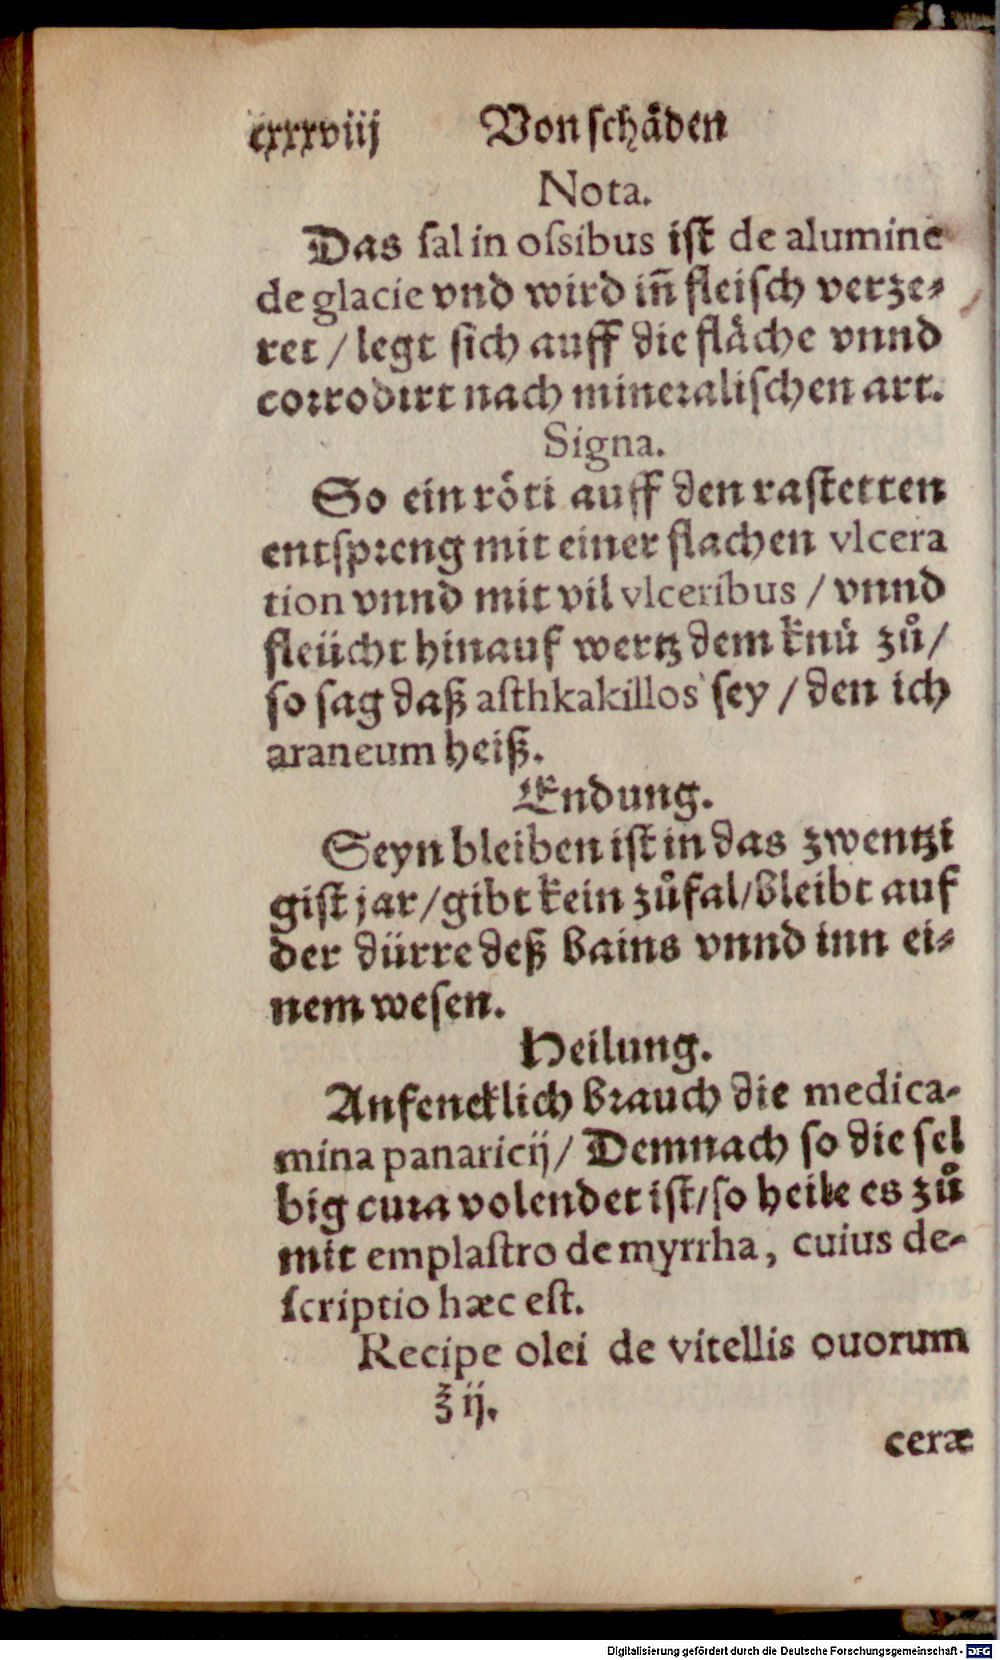 cxxxviij Von schåden
Nota.
Das ſal in oſsibus iſt de alumine
de glacie vnd wird iñ fleiſch verze-
ret / legt ſich auff die flåche vnnd
corrodirt nach mineraliſchen art.
Signa.
So ein röti auff den raſtetten
entſpreng mit einer flachen vlcera
tion vnnd mit vil vlceribus / vnnd
fleücht hinauf wertz dem knü zů /
ſo ſag daß aſthkakillos ſey / den ich
araneum heiß.
Endung.
Seyn bleiben iſt in das zwentzi
giſt jar / gibt kein zůfal / bleibt auf
der dürre deß bains vnnd inn ei-
nem weſen.
Heilung.
Anfencklich brauch die medica-
mina panaricij / Demnach ſo die ſel
big cura volendet iſt / ſo heile es zů
mit emplaſtro de myrrha, cuius de-
ſcriptio hæc eſt.
Recipe olei de vitellis ouorum
℥ ij.
ceræ
Digitalisierung gefördert durch die Deutsche Forschungsgemeinschaft - DFG